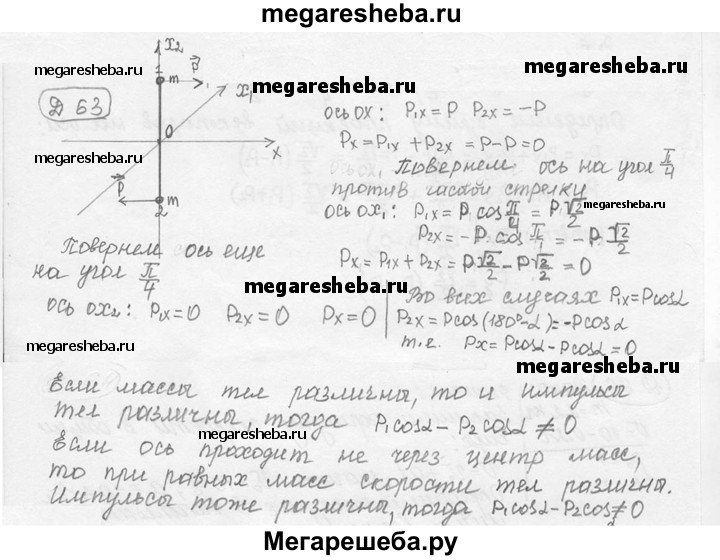 megaresheba.ru
Д 63
x₂
1
m
p⃗
x₁
0
x
p⃗
m
2
megaresheba.ru
megaresheba.ru
ось ox: P₁ₓ = P P₂ₓ = -P
Pₓ = P₁ₓ + P₂ₓ = P - P = 0
Повернем ось на угол π/4
против часов стрелки
ось ox₁: P₁ₓ = P₁ cos π/4 = P√2/2
megaresheba.ru
P₂ₓ = -P cos π/4 = -P√2/2
Pₓ = P₁ₓ + P₂ₓ = P√2/2 - P√2/2 = 0
megaresheba.ru
Повернем ось еще
на угол π/4
ось ox₂: P₁ₓ = 0 P₂ₓ = 0 Pₓ = 0
megaresheba.ru
Во всех случаях P₁ₓ = Pcosα
P₂ₓ = Pcos(180° - α) = -Pcosα
т.е. Pₓ = Pcosα - Pcosα = 0
megaresheba.ru
megaresheba.ru
Если массы тел различны, то и импульсы
тел различны, тогда P₁cosα - P₂cosα ≠ 0
megaresheba.ru
Если ось проходит не через центр масс,
то при равных масс скорости тел различны.
Импульсы тоже различны, тогда P₁cosα - P₂cos ≠ 0
Мегарешеба.ру